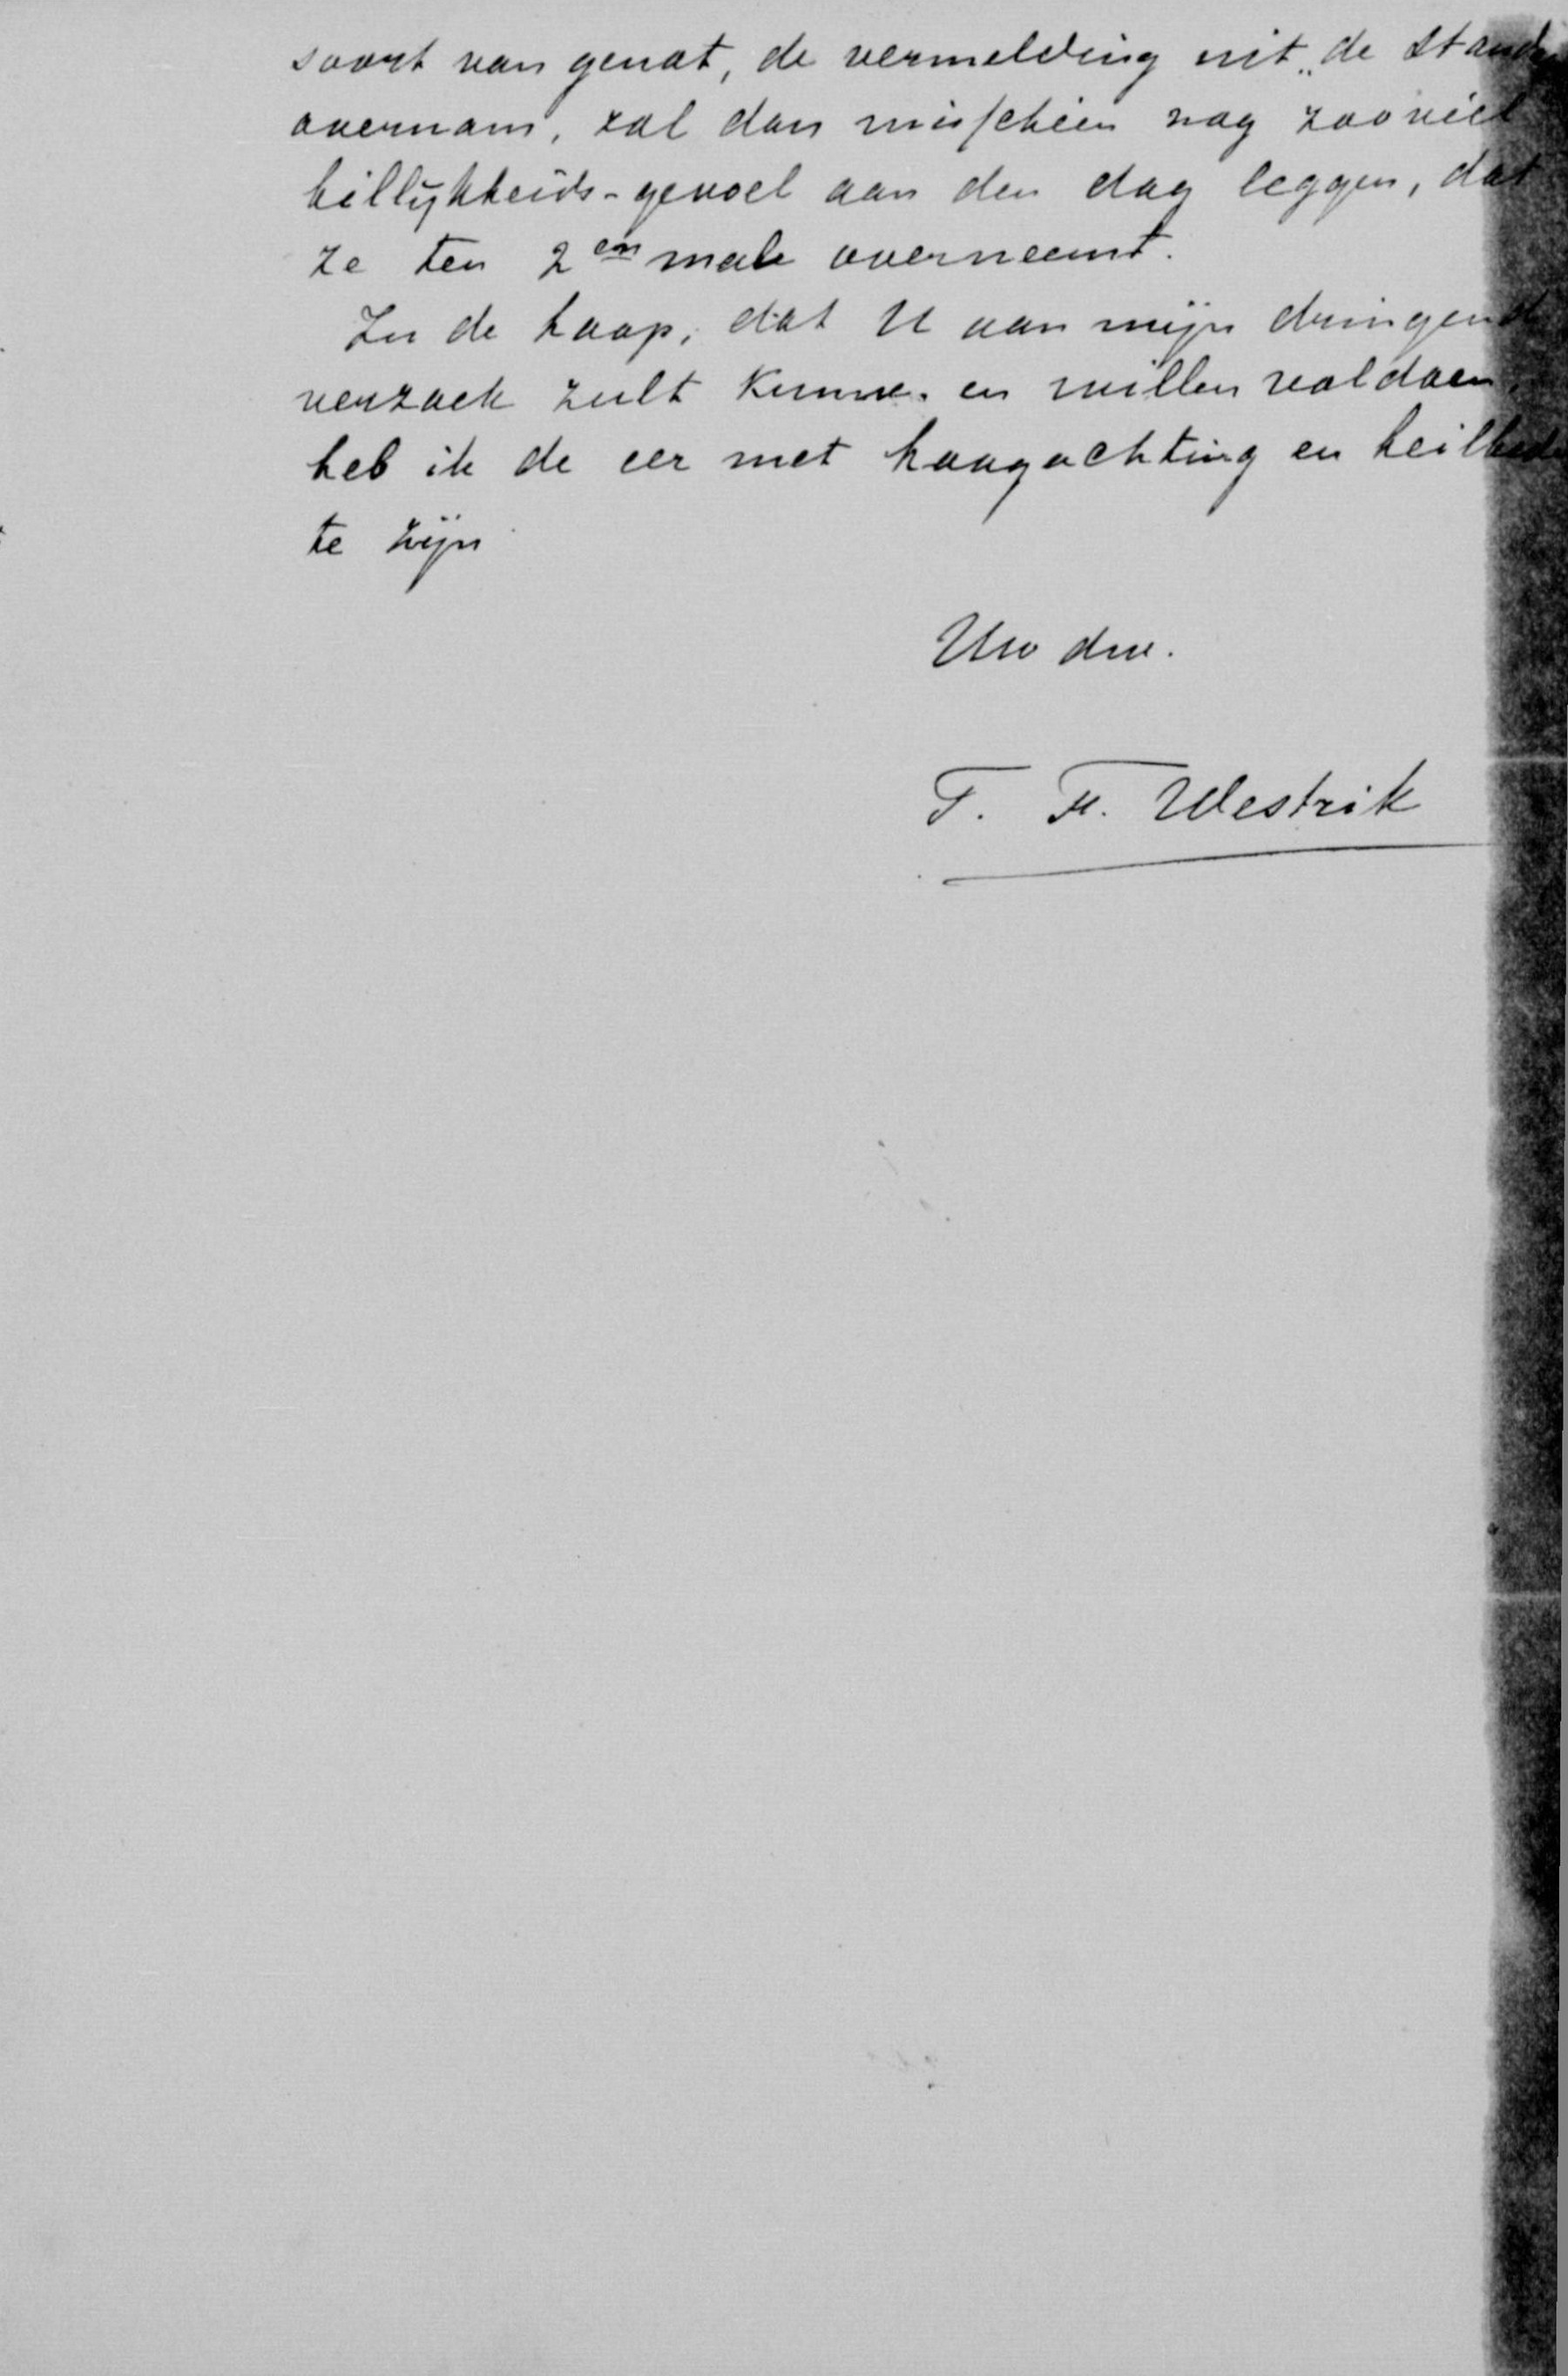 soort van genot, de vermelding uit „de Stand
overnam, zal dan misschien nog zooveel
billijkheids-gevoel aan den dag leggen, dat
ze ten 2en male overneemt.
In de hoop, dat U aan mijn dringend
verzoek zult kunnen en willen voldoen,
heb ik de eer met hoogachting en heilbede
te zijn
Uw dw.
T. F. Westrik